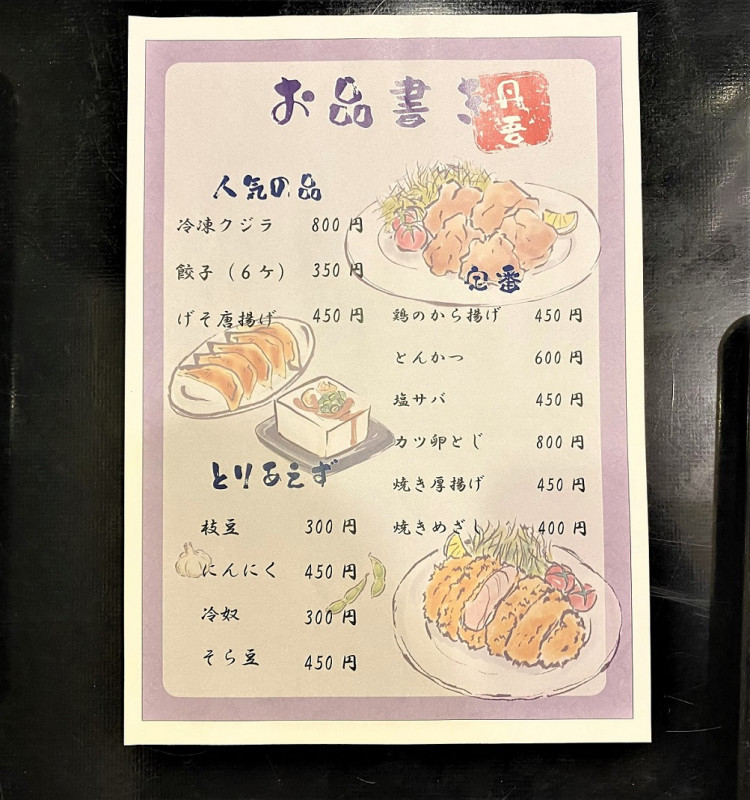 お品書き
丹吾
人気の品
冷凍クジラ 800円
餃子(6ケ) 350円
げそ唐揚げ 450円
定番
鶏のから揚げ 450円
とんかつ 600円
塩サバ 450円
カツ卵とじ 800円
焼き厚揚げ 450円
焼きめざし 400円
とりあえず
枝豆 300円
にんにく 450円
冷奴 300円
そら豆 450円